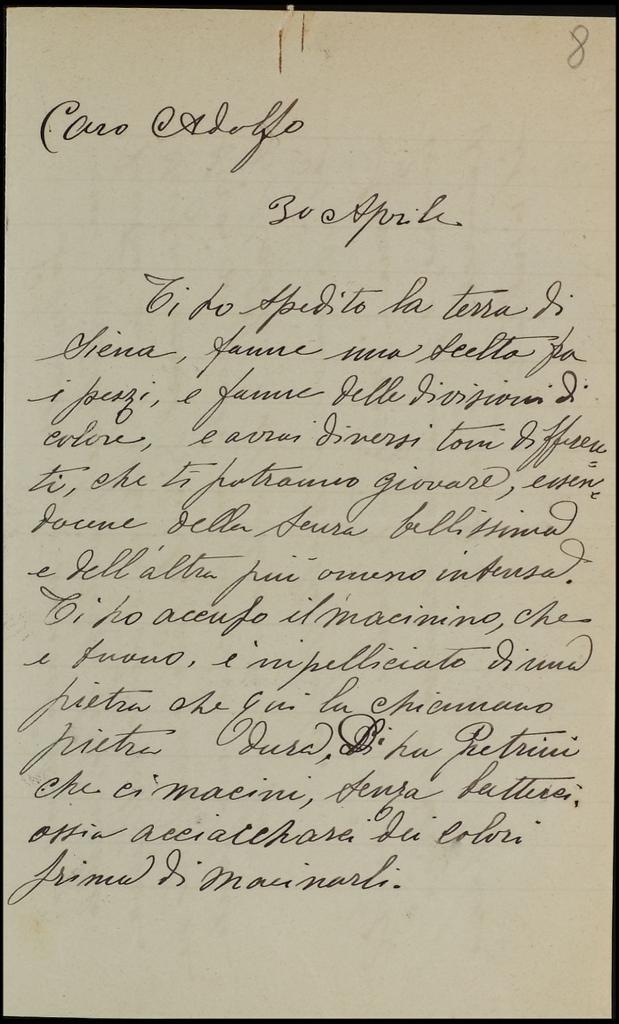 8
Caro Adolfo
30 Aprile
Ti ho spedito la terra di
Siena, fanne una scelta fra
i pezzi, e fanne delle divisioni di
colore, e avrai diversi toni differen=
ti, che ti potranno giovare, essen=
docene della scura bellissima
e dell'altra più o meno intensa.
Ti ho accluso il macinino, che
e buono, e inpelliciato di una
pietra che qui la chiamano
pietra dura, Di ha Pietrini
che ci macini, senza batterci,
ossia acciaccharci dei colori
prima di macinarli.